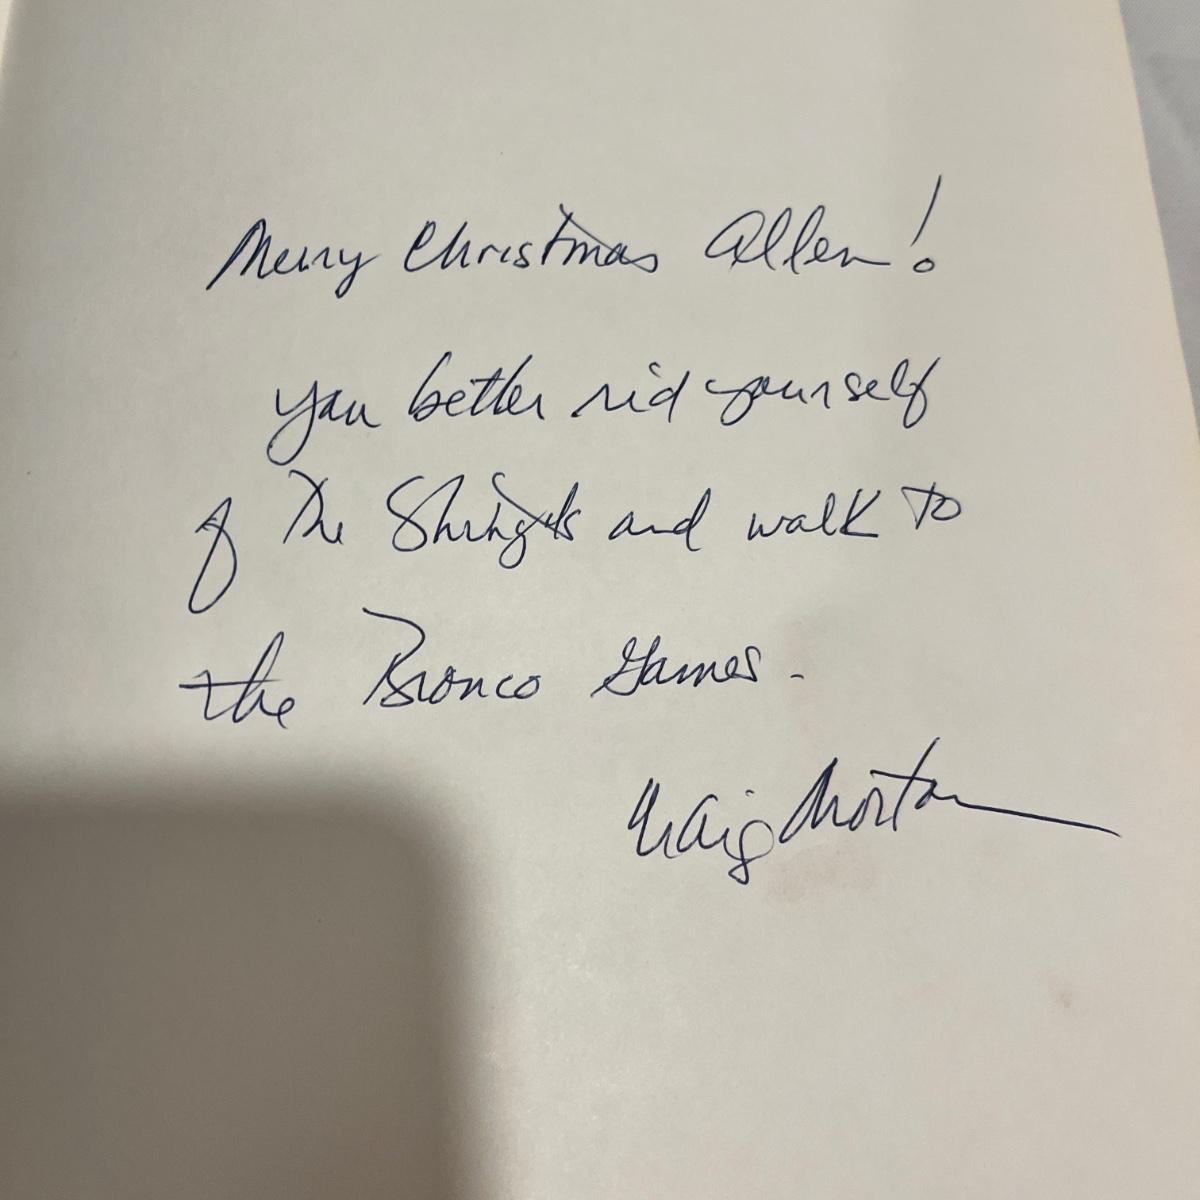 Merry Christmas Allen!
you better rid yourself
of the and walk to
the Bronco Games.
Craig Morton